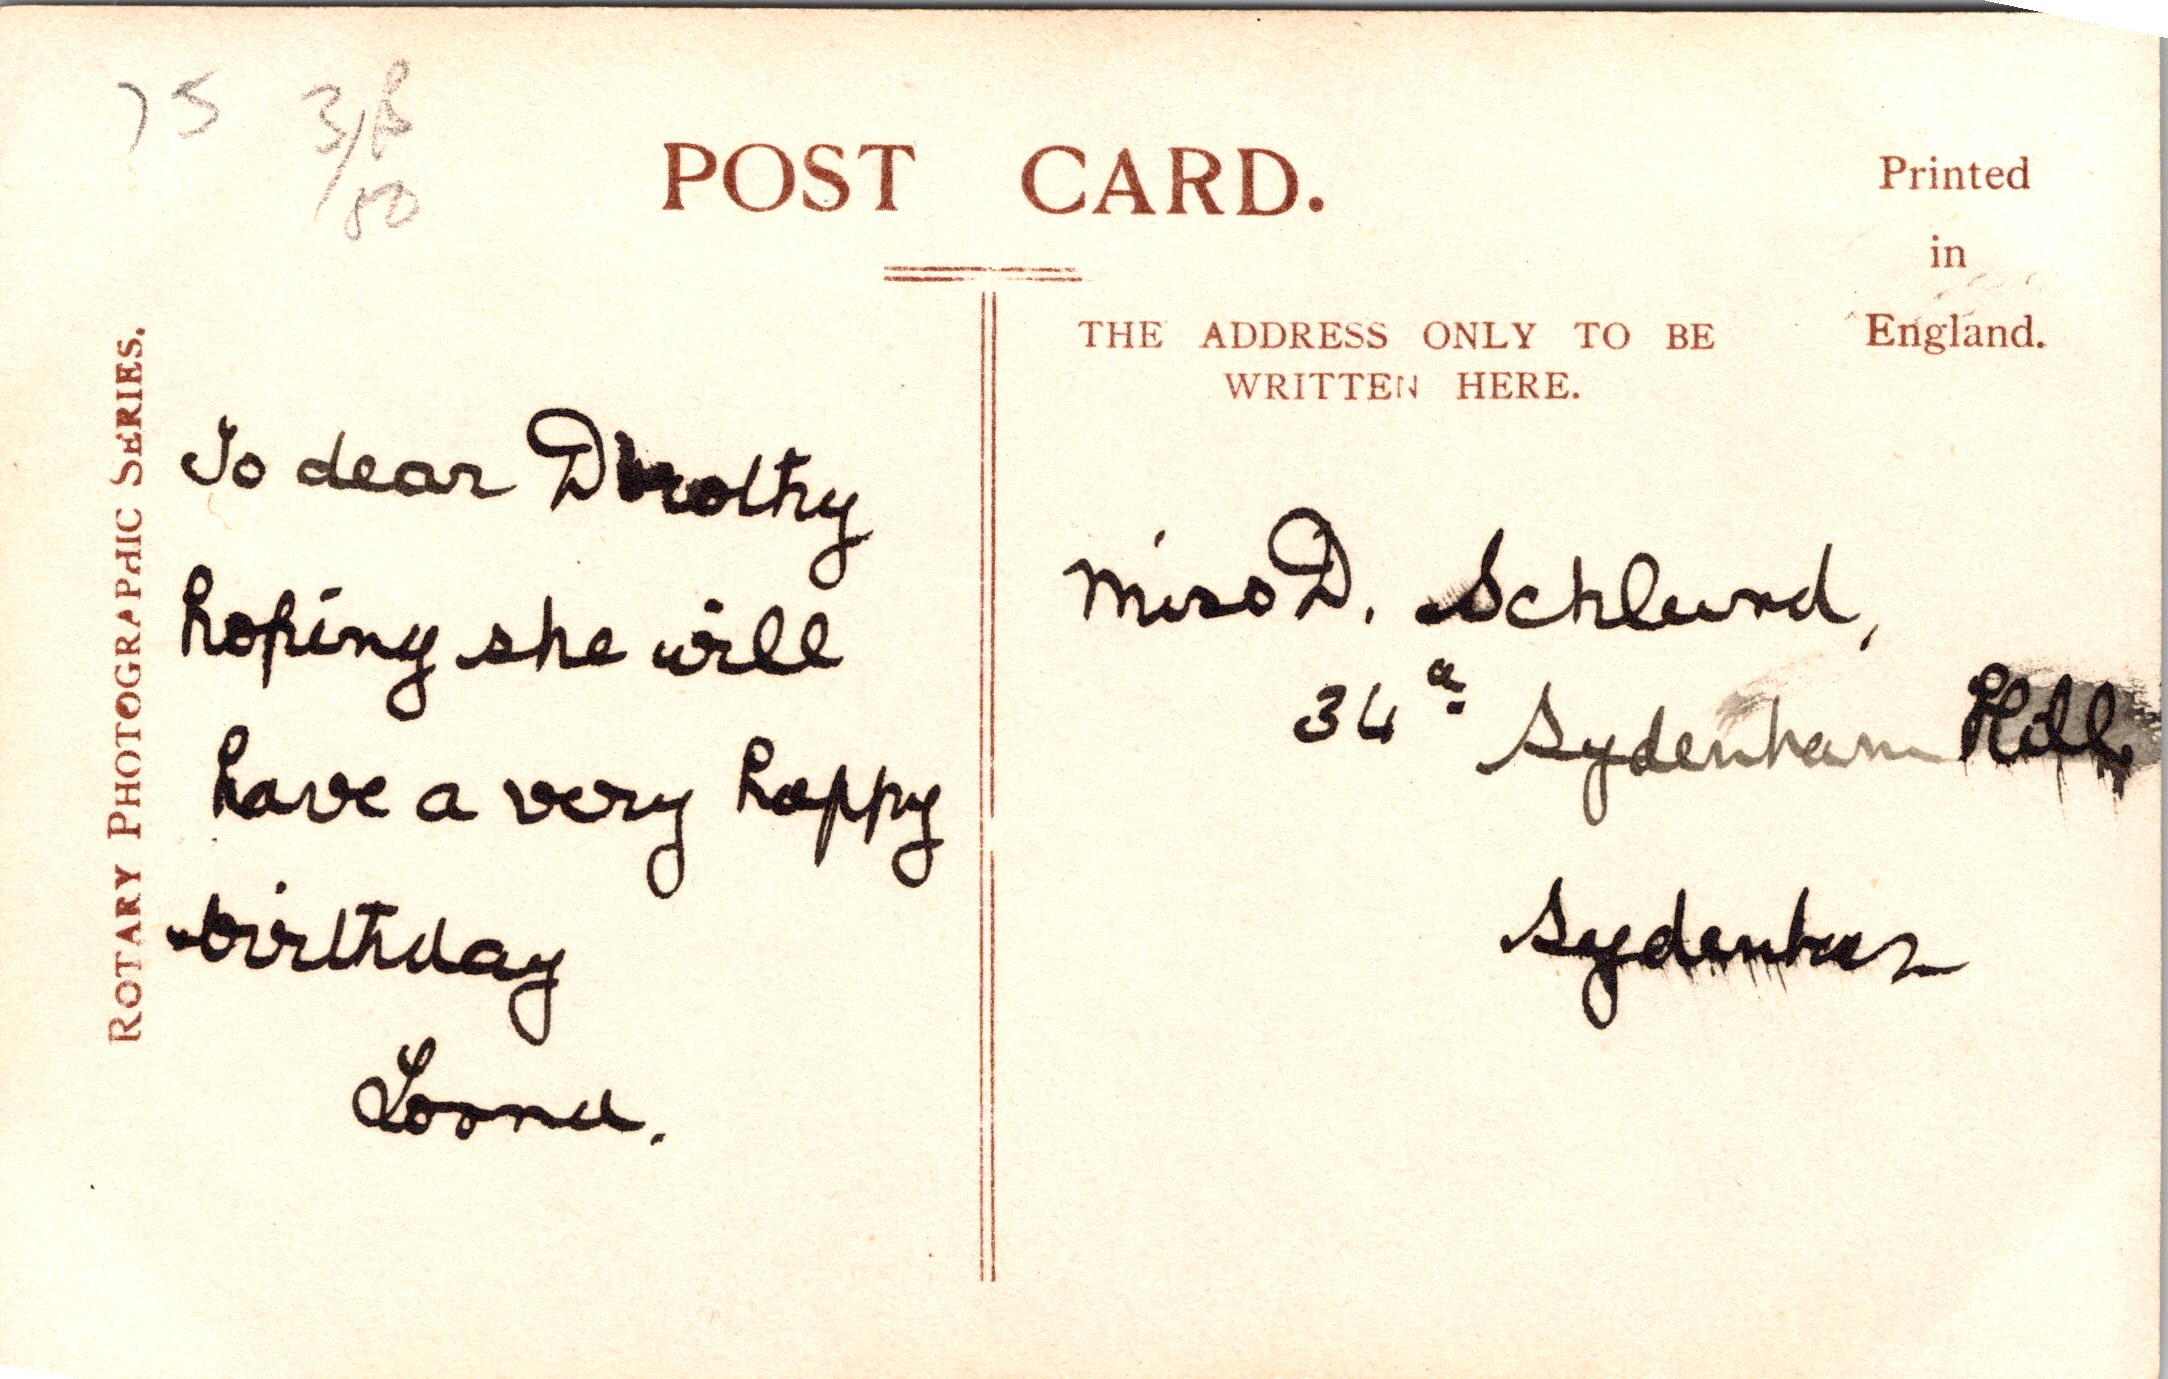 75 3/8
80
POST CARD.
Printed
in
England.
THE ADDRESS ONLY TO BE
WRITTEN HERE.
ROTARY PHOTOGRAPHIC SERIES.
To dear Dorothy
hoping she will
have a very happy
birthday
Loona.
Miss D. Schlund,
34a Sydenham Hill,
Sydenham